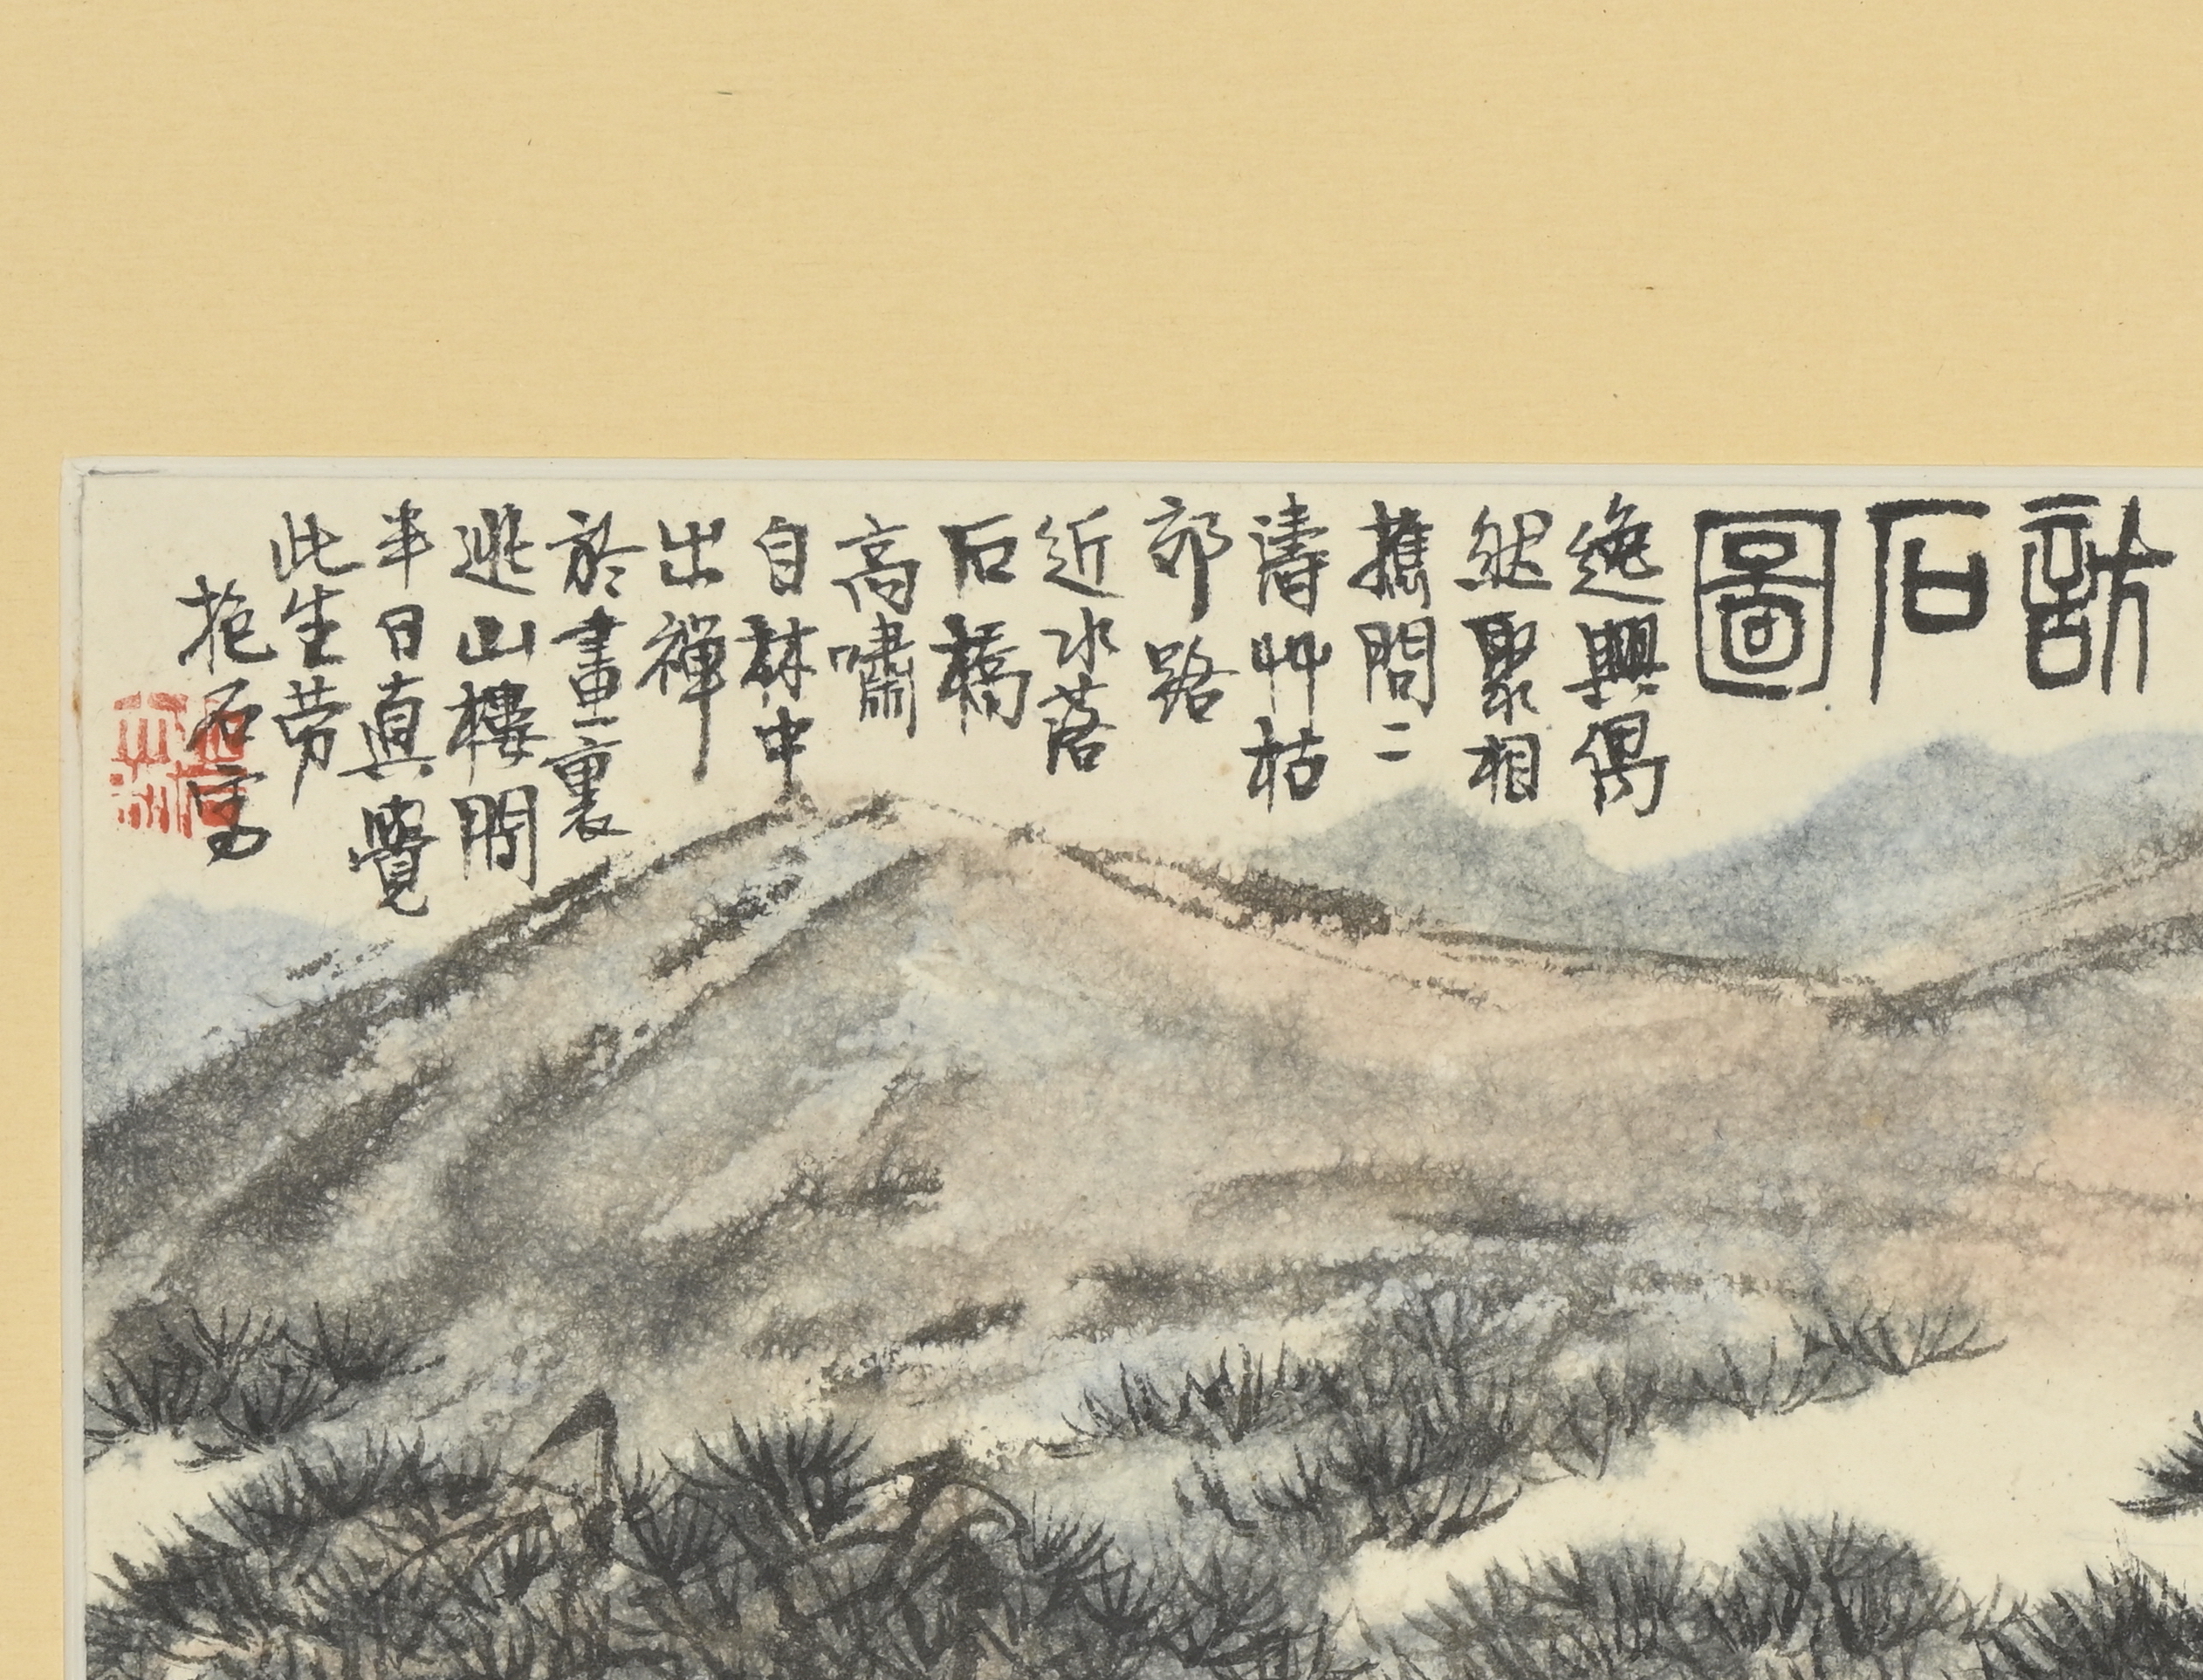 訪石圖
逸興偶
然聚相
攜問二
濤艸枯
郊路
近水落
石橋
高嘯
自林中
出禪
於畫裏
逃山樓閒
半日真覺
此生勞
抱石寫